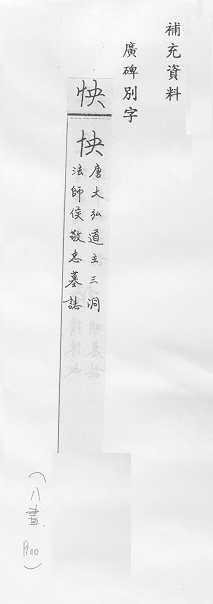 補充資料
廣碑別字
怏
怏
唐大弘道主三洞
法師侯敬忠墓誌
(八畫
P.100)